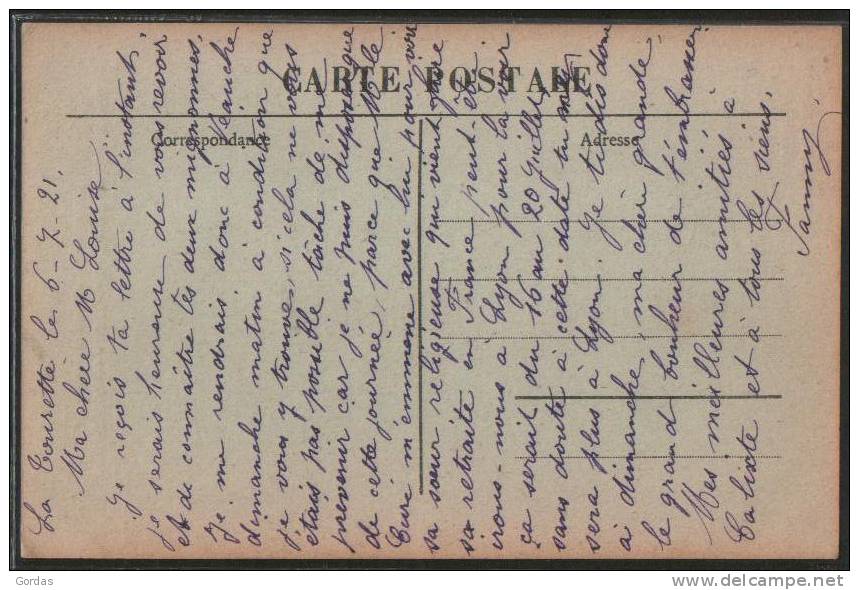 CARTE POSTALE
Correspondance
Adresse
La Tourette le 6-7-21.
Ma chère M Louise
Je reçois ta lettre à l'instant,
je serais heureuse de vous revoir
et de connaître tes deux mignonnes.
Je me rendrais donc à Planche
dimanche matin à condition que
je vous y trouve, si cela ne vous
étais pas possible tâche de me
prévenir car je ne puis disposer que
de cette journée, parce que M le
Curé m'emmène avec lui pour voir
sa sœur religieuse qui vient faire
sa retraite en France peut-être
irons-nous à Lyon pour la voir
ça serait du 16 au 20 Juillet,
sans doute à cette date tu ne
sera plus à Lyon. Je te dis donc
à dimanche, ma chèri grande
le grand bonheur de t'embrasser
Mes meilleures amitiés à
Calixte et à tous les tiens.
Fanny.
Gordas
delcampe.net